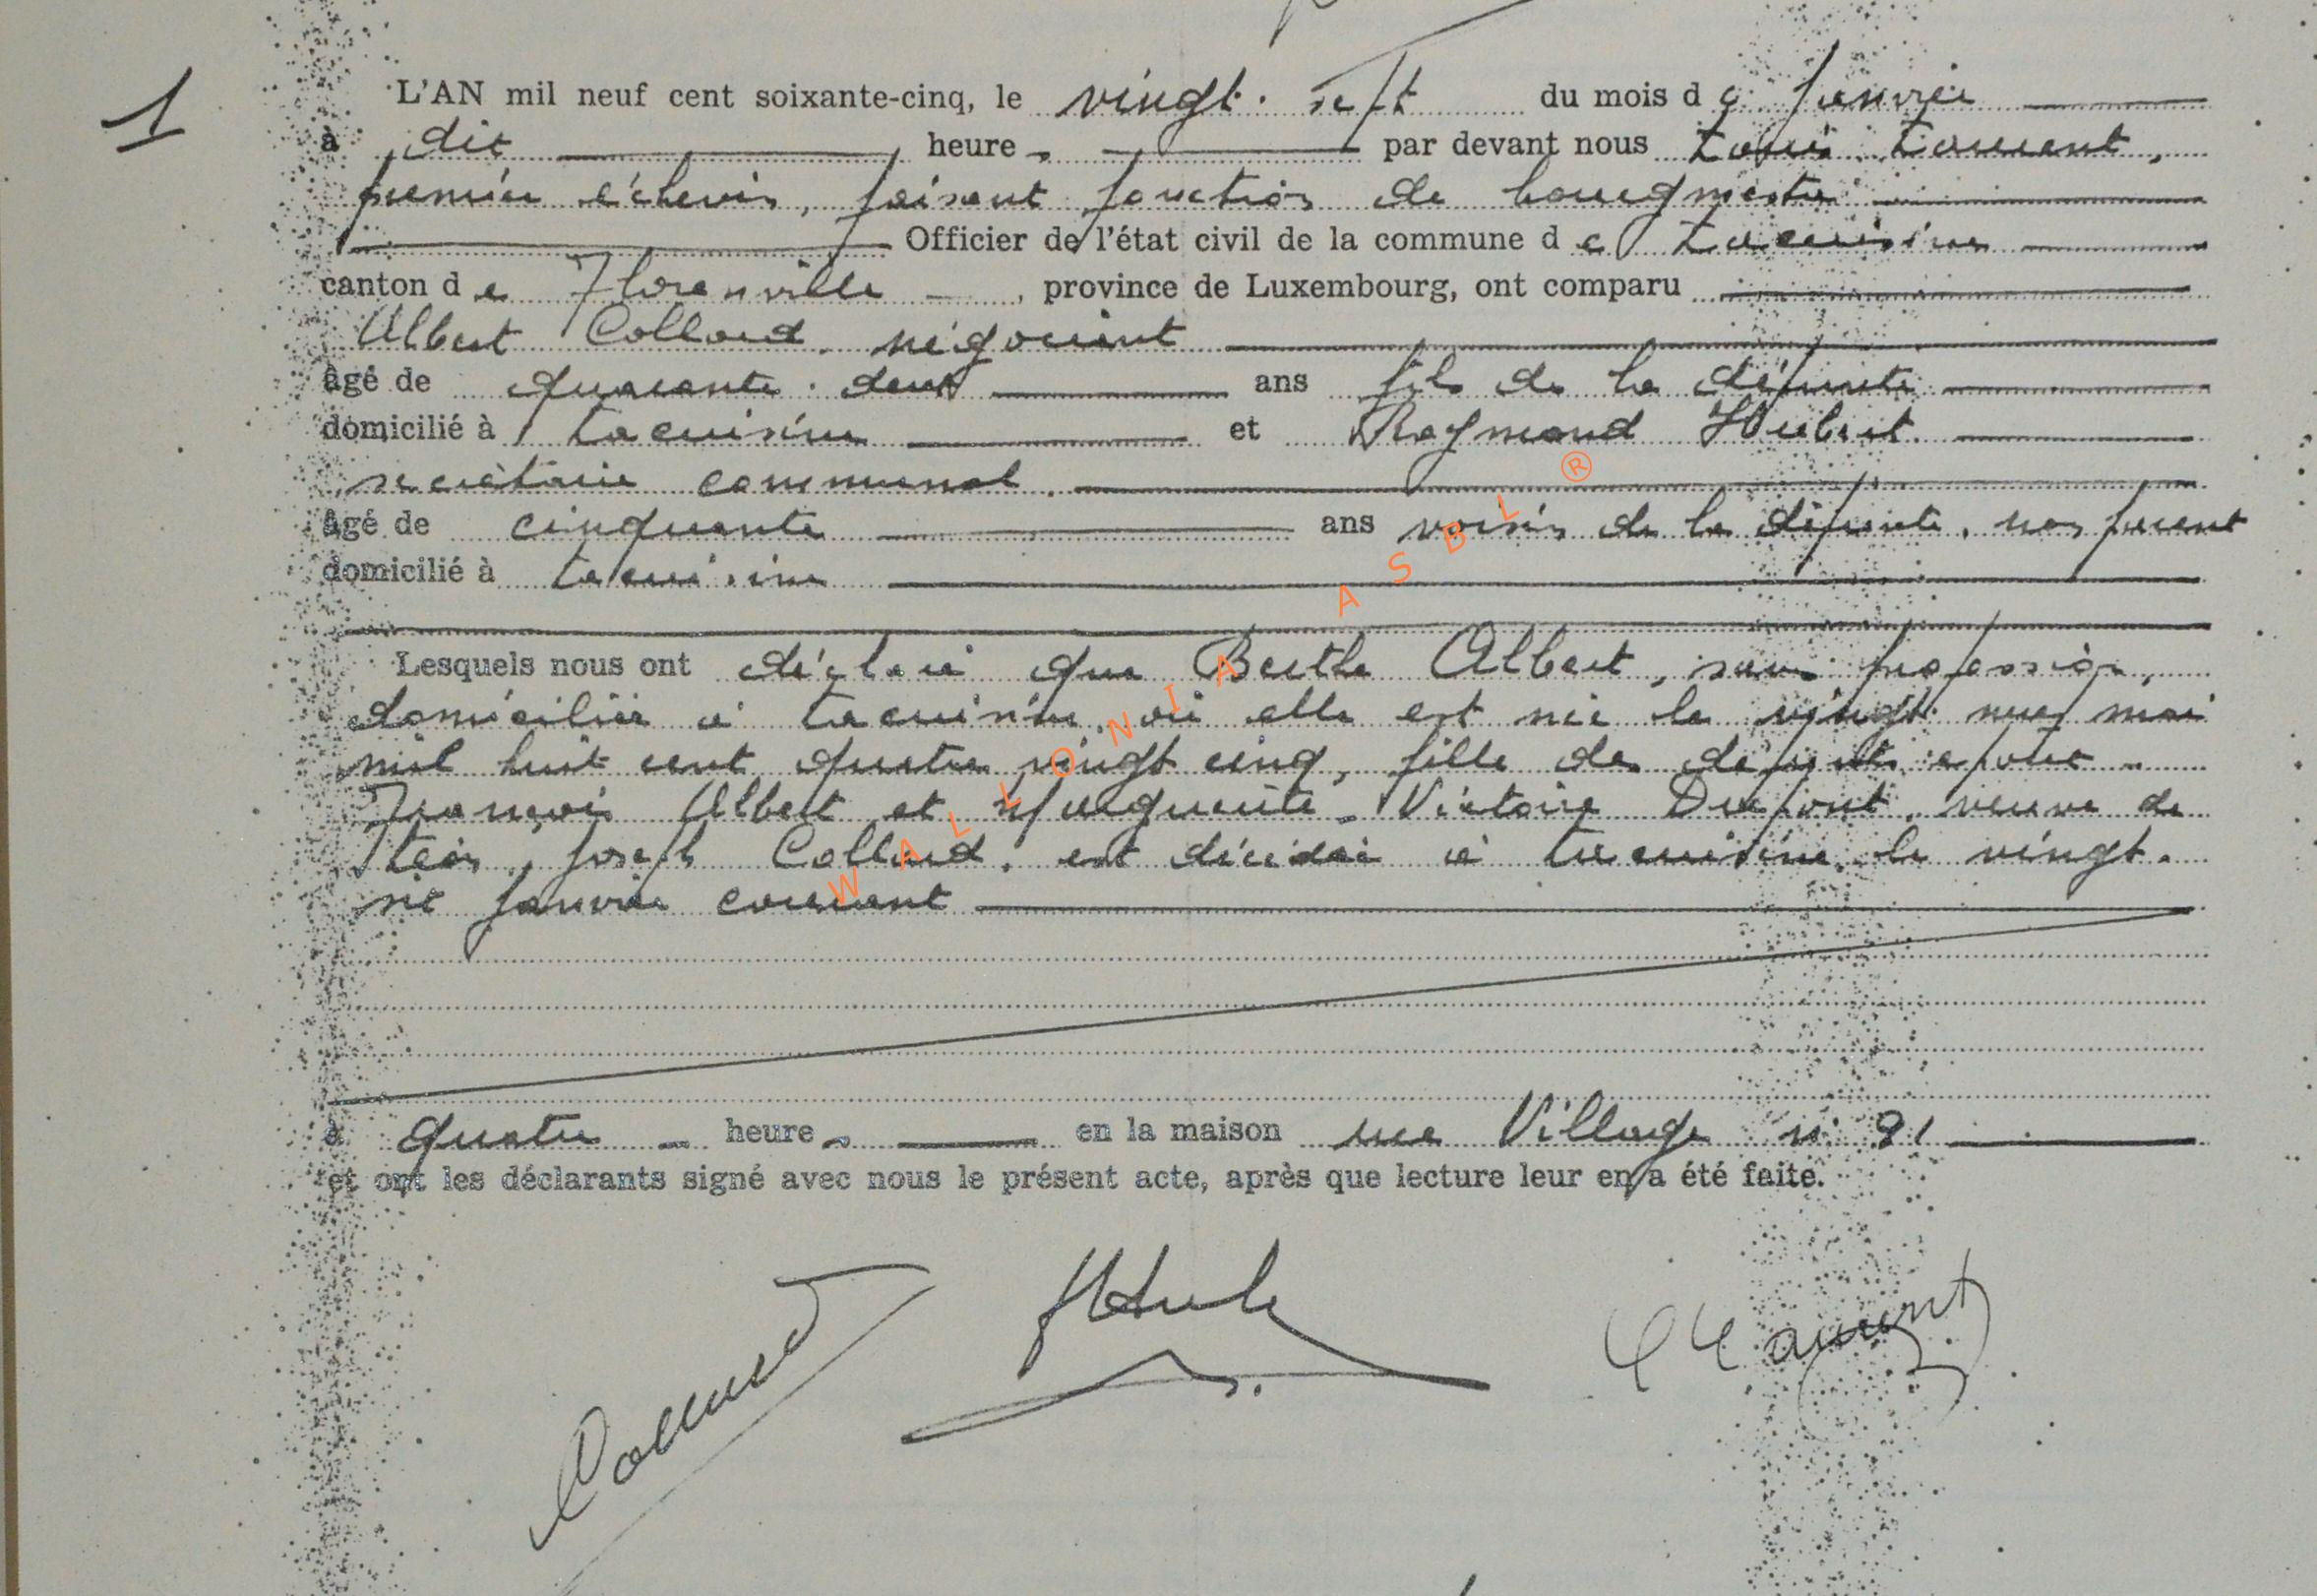 1
L'AN mil neuf cent soixante-cinq, le vingt-sept du mois de janvier
à dix heures par devant nous Louis Laurent,
premier échevin, faisant fonction de bourgmestre
Officier de l'état civil de la commune de Lacuisine
canton de Florenville, province de Luxembourg, ont comparu
Albert Collard, négociant
âgé de quarante-deux ans fils de la défunte
domicilié à Lacuisine et Raymond Hubert
secrétaire communal
âgé de cinquante ans voisin de la défunte, non parent
domicilié à Lacuisine
Lesquels nous ont déclaré que Berthe Albert, sans profession,
domiciliée à Lacuisine, où elle est née le vingt-neuf mai
mil huit cent quatre vingt cinq, fille des défunts époux
François Albert et Marguerite-Victoire Dupont, veuve de
Léon, Joseph Collard, est décédée à Lacuisine, le vingt-
six janvier courant
à quatre heures en la maison rue Village n° 91
et ont les déclarants signé avec nous le présent acte, après que lecture leur en a été faite.
Collard LLaurent
WALLONIA ASBL ®